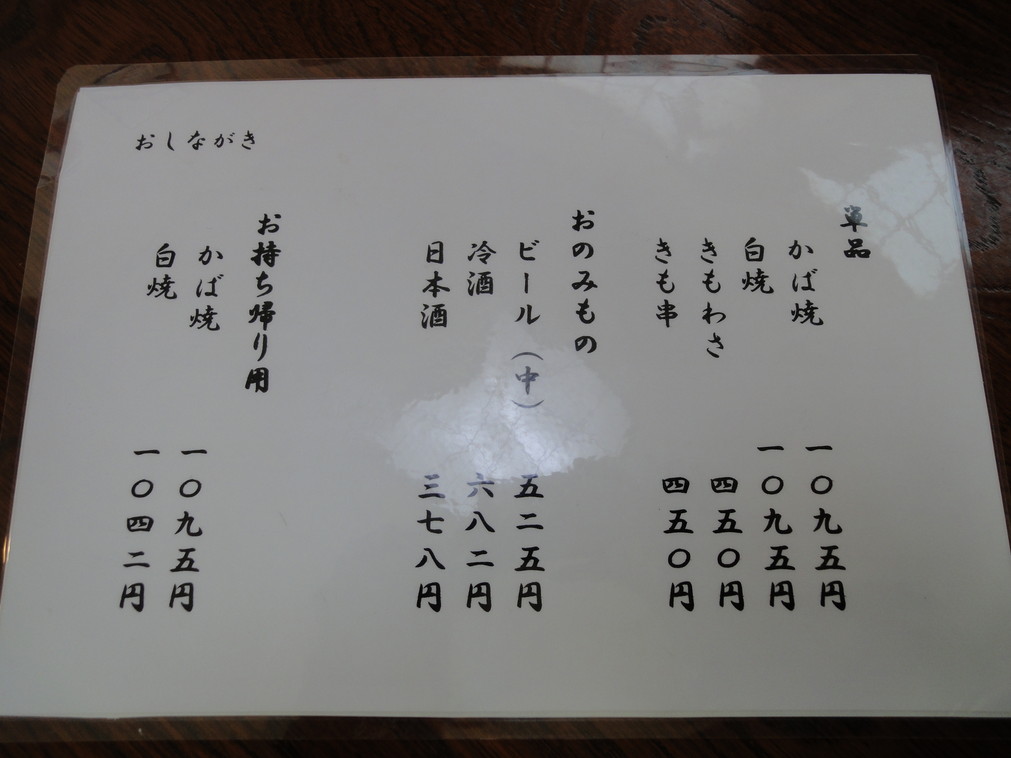 おしながき
単品
かば焼 一〇九五円
白焼 一〇九五円
きもわさ 四五〇円
きも串 四五〇円
おのみもの
ビール（中） 五二五円
冷酒 六八二円
日本酒 三七八円
お持ち帰り用
かば焼 一〇九五円
白焼 一〇四二円